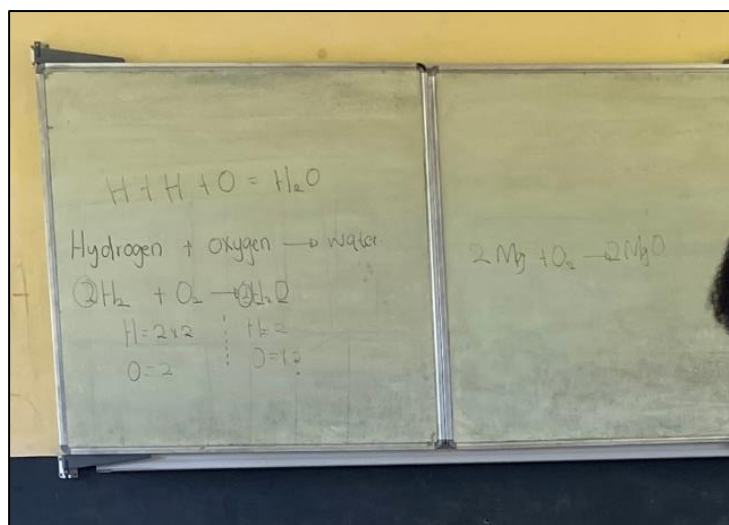 H + H + O = H₂O
Hydrogen + oxygen → water
②H₂ + O₂ → ②H₂O
H = 2×2 H = 2
O = 2 O = 1×2
2Mg + O₂ → 2MgO